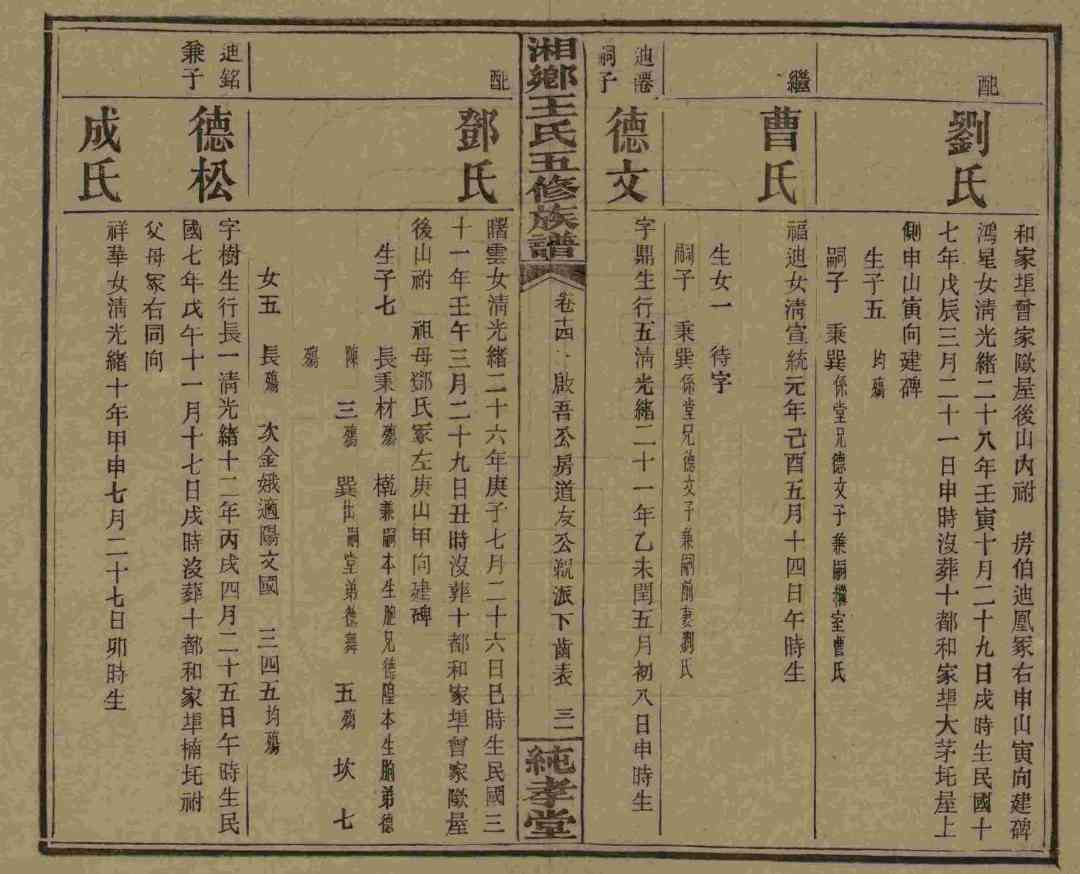 和家埠曾家歐屋後山內祔 房伯迪凰冢右申山寅向建碑
配
劉氏
鴻星女淸光緒二十八年壬寅十月二十九日戌時生民國十
七年戊辰三月二十一日申時沒葬十都和家埠大茅坵屋上
側申山寅向建碑
生子五 均殤
嗣子 秉巽係堂兄德文子兼嗣繼室曹氏
繼
曹氏
福迪女淸宣統元年己酉五月十四日午時生
生女一 待字
嗣子 秉巽係堂兄德文子兼嗣前妻劉氏
迪瀍
嗣子
德文
字鼎生行五淸光緒二十一年乙未閏五月初八日申時生
湘鄉王氏五修族譜
卷十四 啟吾公房道友公親派下齒表 三一
純孝堂
配
鄧氏
曙雲女淸光緒二十六年庚子七月二十六日巳時生民國三
十一年壬午三月二十九日丑時沒葬十都和家埠曾家歐屋
後山祔 祖母鄧氏冢左庚山甲向建碑
生子七 長秉材殤 兼嗣本生胞兄德隍本生胞弟德
陳 三殤 巽出嗣堂弟德 五殤 坎 七
殤
女五 長殤 次金娥適陽文國 三四五均殤
迪銘
兼子
德松
字樹生行長一淸光緒十二年丙戌四月二十五日午時生民
國七年戊午十一月十七日戌時沒葬十都和家埠楠坵祔
父母冢右同向
成氏
祥華女淸光緒十年甲申七月二十七日卯時生